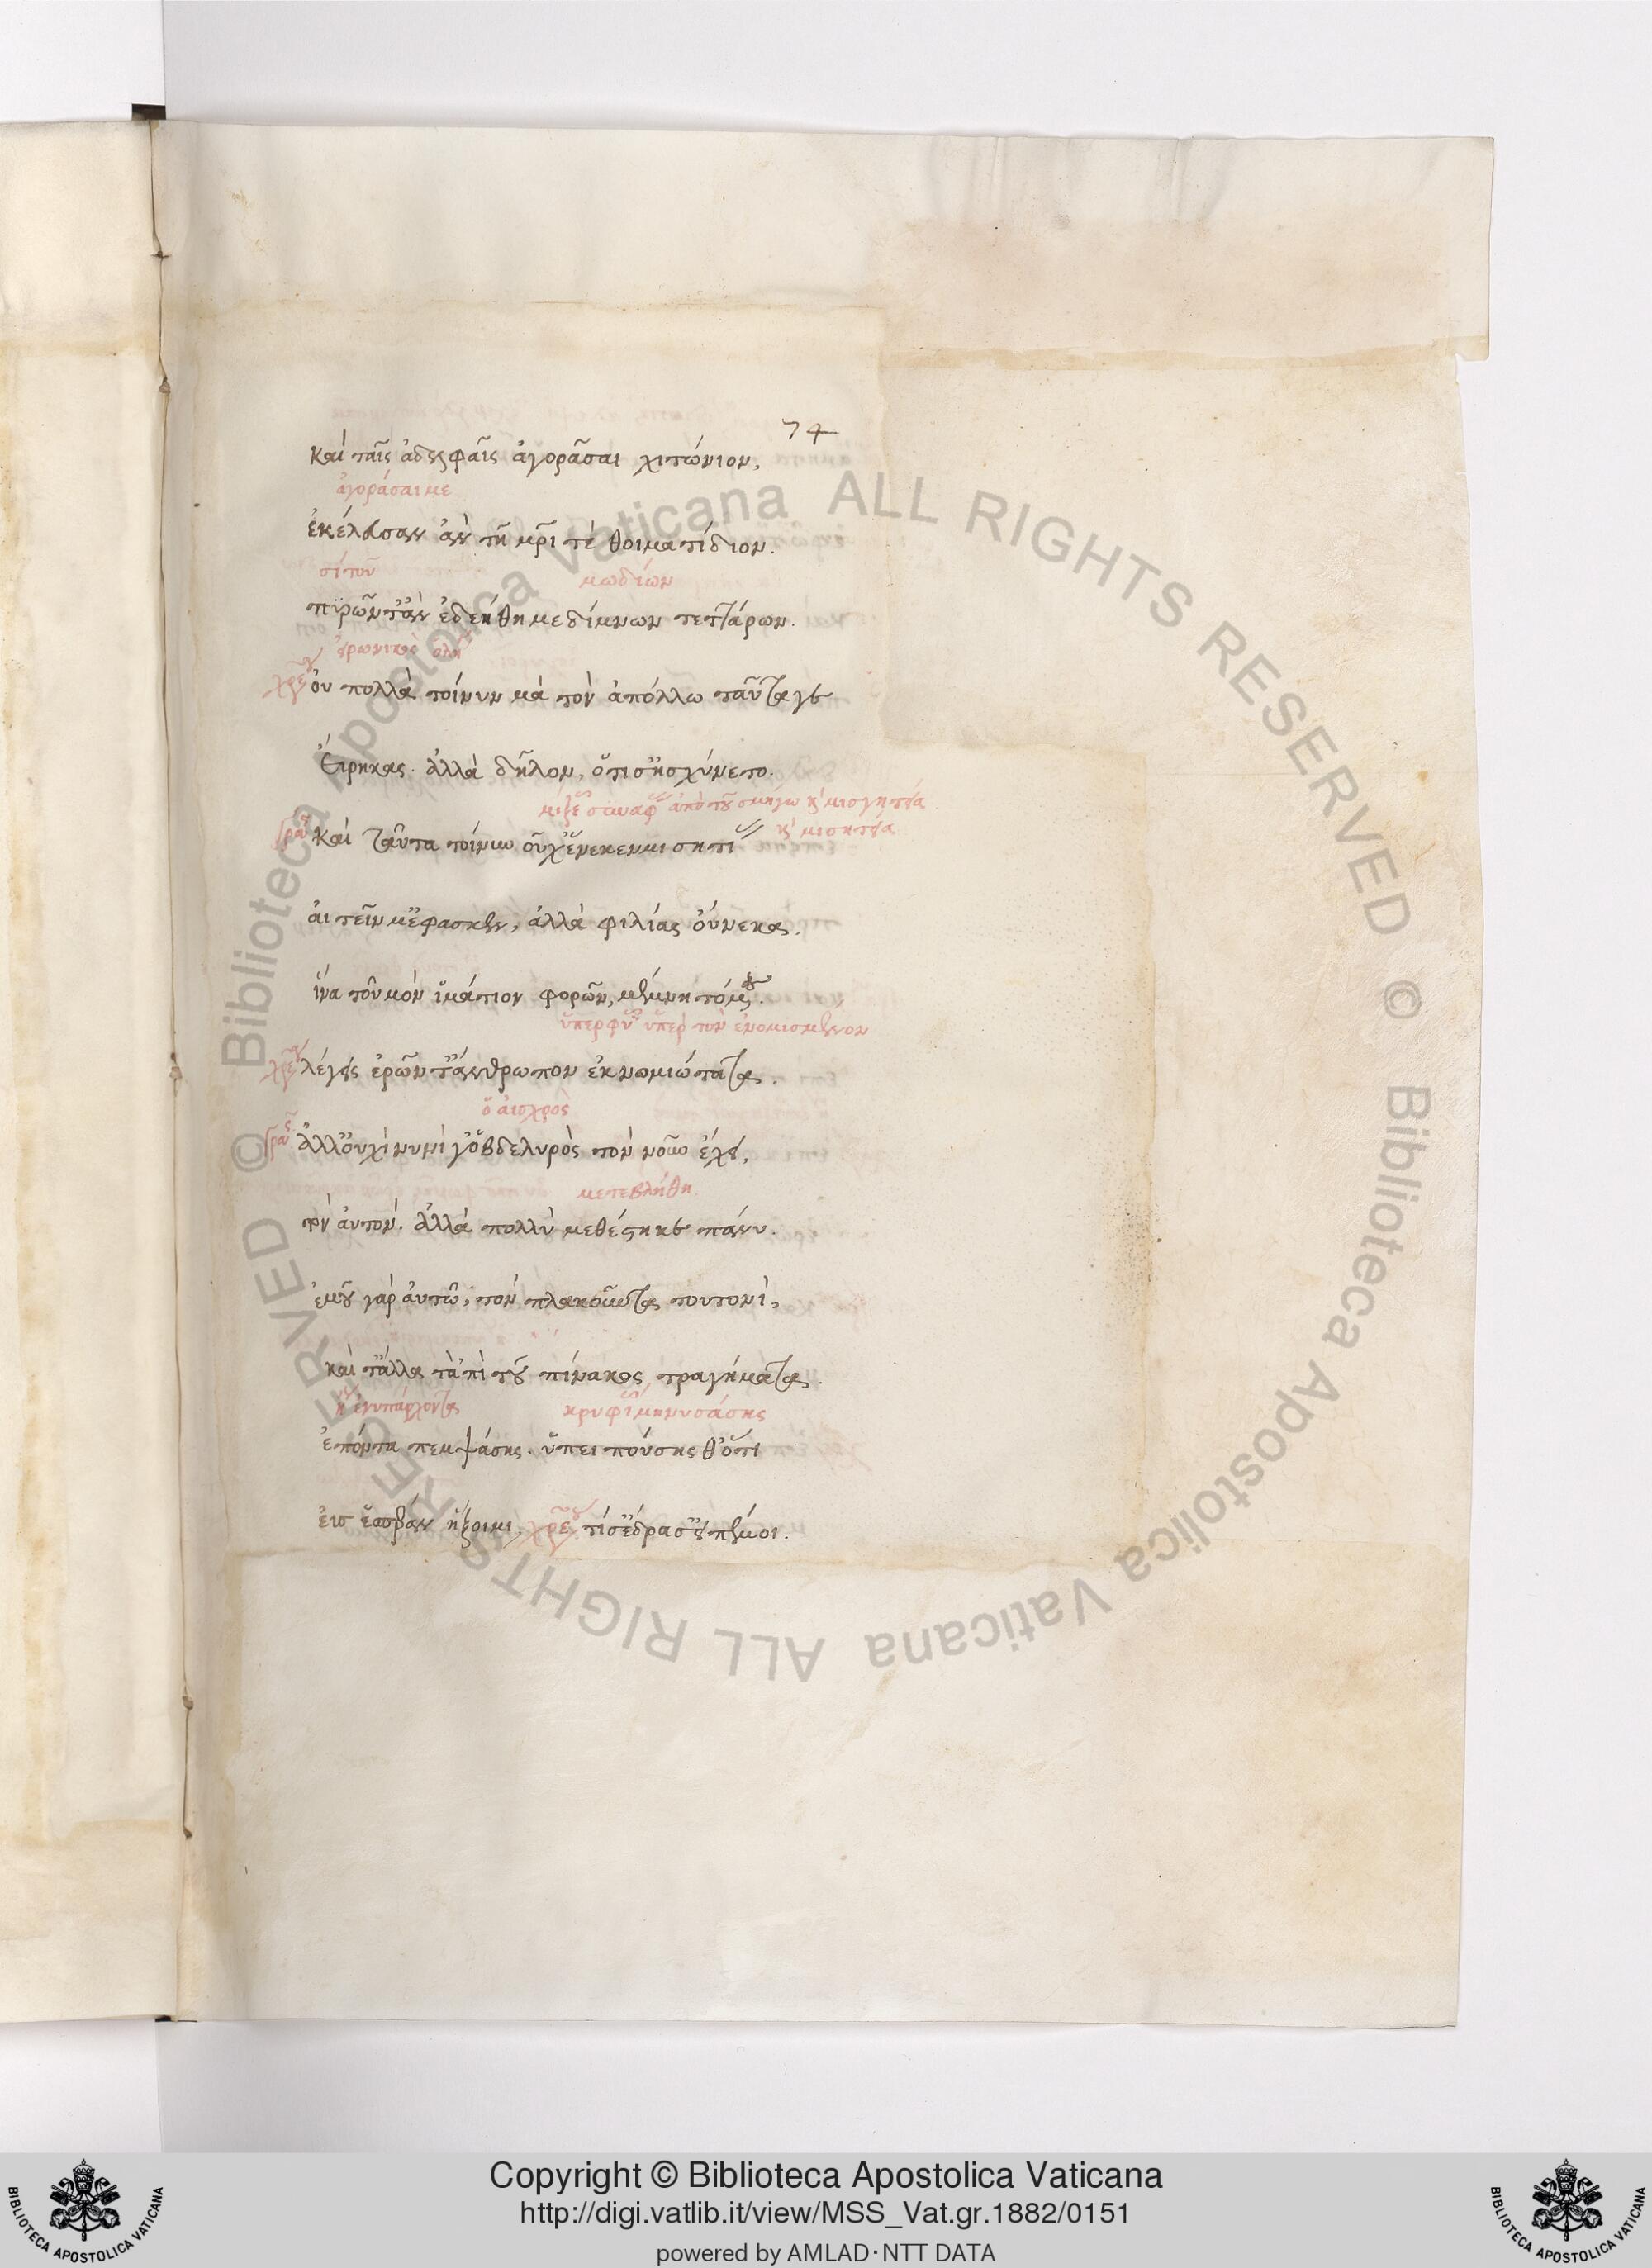 74
καὶ ταῖς ἀδελφαῖς ἀγορᾶσαι χιτώνιον,
ἀγοράσαι με
ἐκέλευσεν ἂν τῇ μρὶ τὲ θοιματίδιον.
σίτου μωδίων
πυρῶν τ' ἂν ἐδεήθη μεδίμνων τεττάρων.
εἰρωνικὸς
χρε οὐ πολλὰ τοίνυν μὰ τὸν ἀπόλλω ταῦτα γε
εἴρηκας. ἀλλὰ δῆλον, ὅτι σ' ἠσχύνετο.
ἀπὸ τοῦ σμήγω κ μισγητία
κ μισητία
γραῦ καὶ ταῦτα τοίνυν οὐχ' ἕνεκεν μισητί
αἰτεῖν μ' ἔφασκεν, ἀλλὰ φιλίας οὕνεκα.
ἵνα τοὐμὸν ἱμάτιον φορῶν, μεμνῇτό μου.
ὑπερφυ ὑπὲρ τὸν ἐνομισμένον
χρε λέγεις ἐρῶντ' ἄνθρωπον ἐκνομιώτατα.
ὁ αἰσχρὸς
γραῦς ἀλλ' οὐχὶ νυνί γ' ὁ βδελυρὸς τὸν νοῦν ἔχει,
μετεβλήθη
τὸν αὐτόν. ἀλλὰ πολὺ μεθέστηκε πάνυ.
ἐμοῦ γὰρ αὐτῷ, τὸν πλακοῦντα τουτονὶ,
καὶ τἄλλα τἀπὶ τοῦ πίνακος τραγήματα
ἐνυπάρχοντα κρυφί μηνυσάσης
ἐπόντα πεμψάσης. ὑπειπούσης θ' ὅτι
εἰς ἑσπέραν ἥξοιμι, χρε τί σ' ἔδρασ' εἰπέ μοι.
Copyright © Biblioteca Apostolica Vaticana
http://digi.vatlib.it/view/MSS_Vat.gr.1882/0151
powered by AMLAD·NTT DATA
BIBLIOTECA APOSTOLICA VATICANA
BIBLIOTECA APOSTOLICA VATICANA
© Biblioteca Apostolica Vaticana ALL RIGHTS RESERVED © Biblioteca Apostolica Vaticana ALL RIGHTS RESERVED